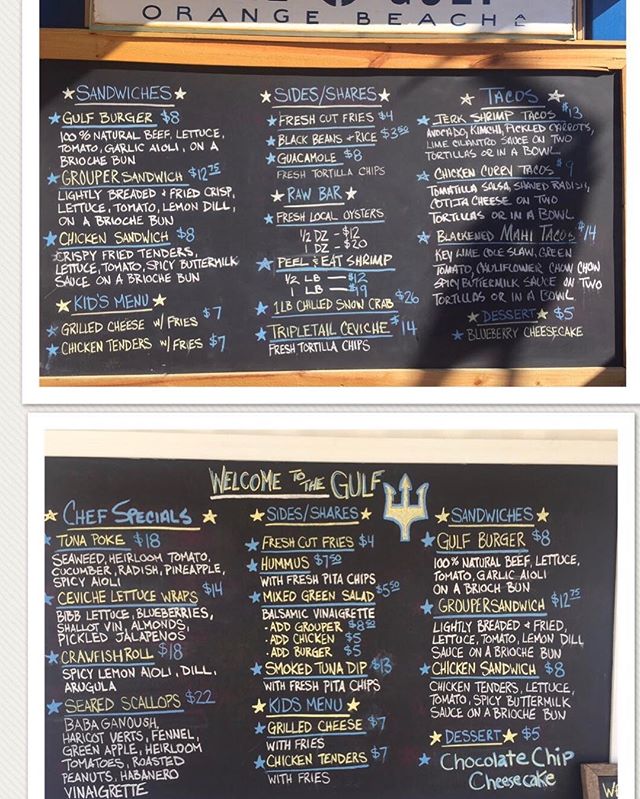 ORANGE BEACH
SANDWICHES
GULF BURGER $8
100% NATURAL BEEF, LETTUCE,
TOMATO, GARLIC AIOLI, ON A
BRIOCHE BUN
GROUPER SANDWICH $12.75
LIGHTLY BREADED & FRIED CRISP,
LETTUCE, TOMATO, LEMON DILL,
ON A BRIOCHE BUN
CHICKEN SANDWICH $8
CRISPY FRIED TENDERS,
LETTUCE, TOMATO, SPICY BUTTERMILK
SAUCE ON A BRIOCHE BUN
KID'S MENU
GRILLED CHEESE W/ FRIES $7
CHICKEN TENDERS W/ FRIES $7
SIDES/SHARES
FRESH CUT FRIES $4
BLACK BEANS & RICE $3.50
GUACAMOLE $8
FRESH TORTILLA CHIPS
RAW BAR
FRESH LOCAL OYSTERS
1/2 DZ - $12
1 DZ - $20
PEEL & EAT SHRIMP
1/2 LB - $12
1 LB - $9
1LB CHILLED SNOW CRAB $26
TRIPLETAIL CEVICHE $14
FRESH TORTILLA CHIPS
TACOS
JERK SHRIMP TACOS $13
AVOCADO, KIMCHI, PICKLED CARROTS,
LIME CILANTRO SAUCE ON TWO
TORTILLAS OR IN A BOWL
CHICKEN CURRY TACOS $9
TOMATILLA SALSA, SHAVED RADISH,
COTIJA CHEESE ON TWO
TORTILLAS OR IN A BOWL
BLACKENED MAHI TACOS $14
KEY LIME COLE SLAW, GREEN
TOMATO, CAULIFLOWER CHOW CHOW
SPICY BUTTERMILK SAUCE ON TWO
TORTILLAS OR IN A BOWL
DESSERT $5
BLUEBERRY CHEESECAKE
WELCOME TO THE GULF
CHEF SPECIALS
TUNA POKE $18
SEAWEED, HEIRLOOM TOMATO,
CUCUMBER, RADISH, PINEAPPLE,
SPICY AIOLI
CEVICHE LETTUCE WRAPS $14
BIBB LETTUCE, BLUEBERRIES,
SHALLOT VIN, ALMONDS,
PICKLED JALAPENOS
CRAWFISH ROLL $18
SPICY LEMON AIOLI, DILL,
ARUGULA
SEARED SCALLOPS $22
BABA GANOUSH,
HARICOT VERTS, FENNEL,
GREEN APPLE, HEIRLOOM
TOMATOES, ROASTED
PEANUTS, HABANERO
VINAIGRETTE
SIDES/SHARES
FRESH CUT FRIES $4
HUMMUS $7.50
WITH FRESH PITA CHIPS
MIXED GREEN SALAD $5.50
BALSAMIC VINAIGRETTE
· ADD GROUPER $8.50
· ADD CHICKEN $5
· ADD BURGER $5
SMOKED TUNA DIP $13
WITH FRESH PITA CHIPS
KIDS MENU
GRILLED CHEESE $7
WITH FRIES
CHICKEN TENDERS $7
WITH FRIES
SANDWICHES
GULF BURGER $8
100% NATURAL BEEF, LETTUCE,
TOMATO, GARLIC AIOLI
ON A BRIOCH BUN
GROUPER SANDWICH $12.75
LIGHTLY BREADED & FRIED,
LETTUCE, TOMATO, LEMON DILL
SAUCE ON A BRIOCHE BUN
CHICKEN SANDWICH $8
CHICKEN TENDERS, LETTUCE,
TOMATO, SPICY BUTTERMILK
SAUCE ON A BRIOCHE BUN
DESSERT $5
Chocolate Chip
Cheesecake
WE